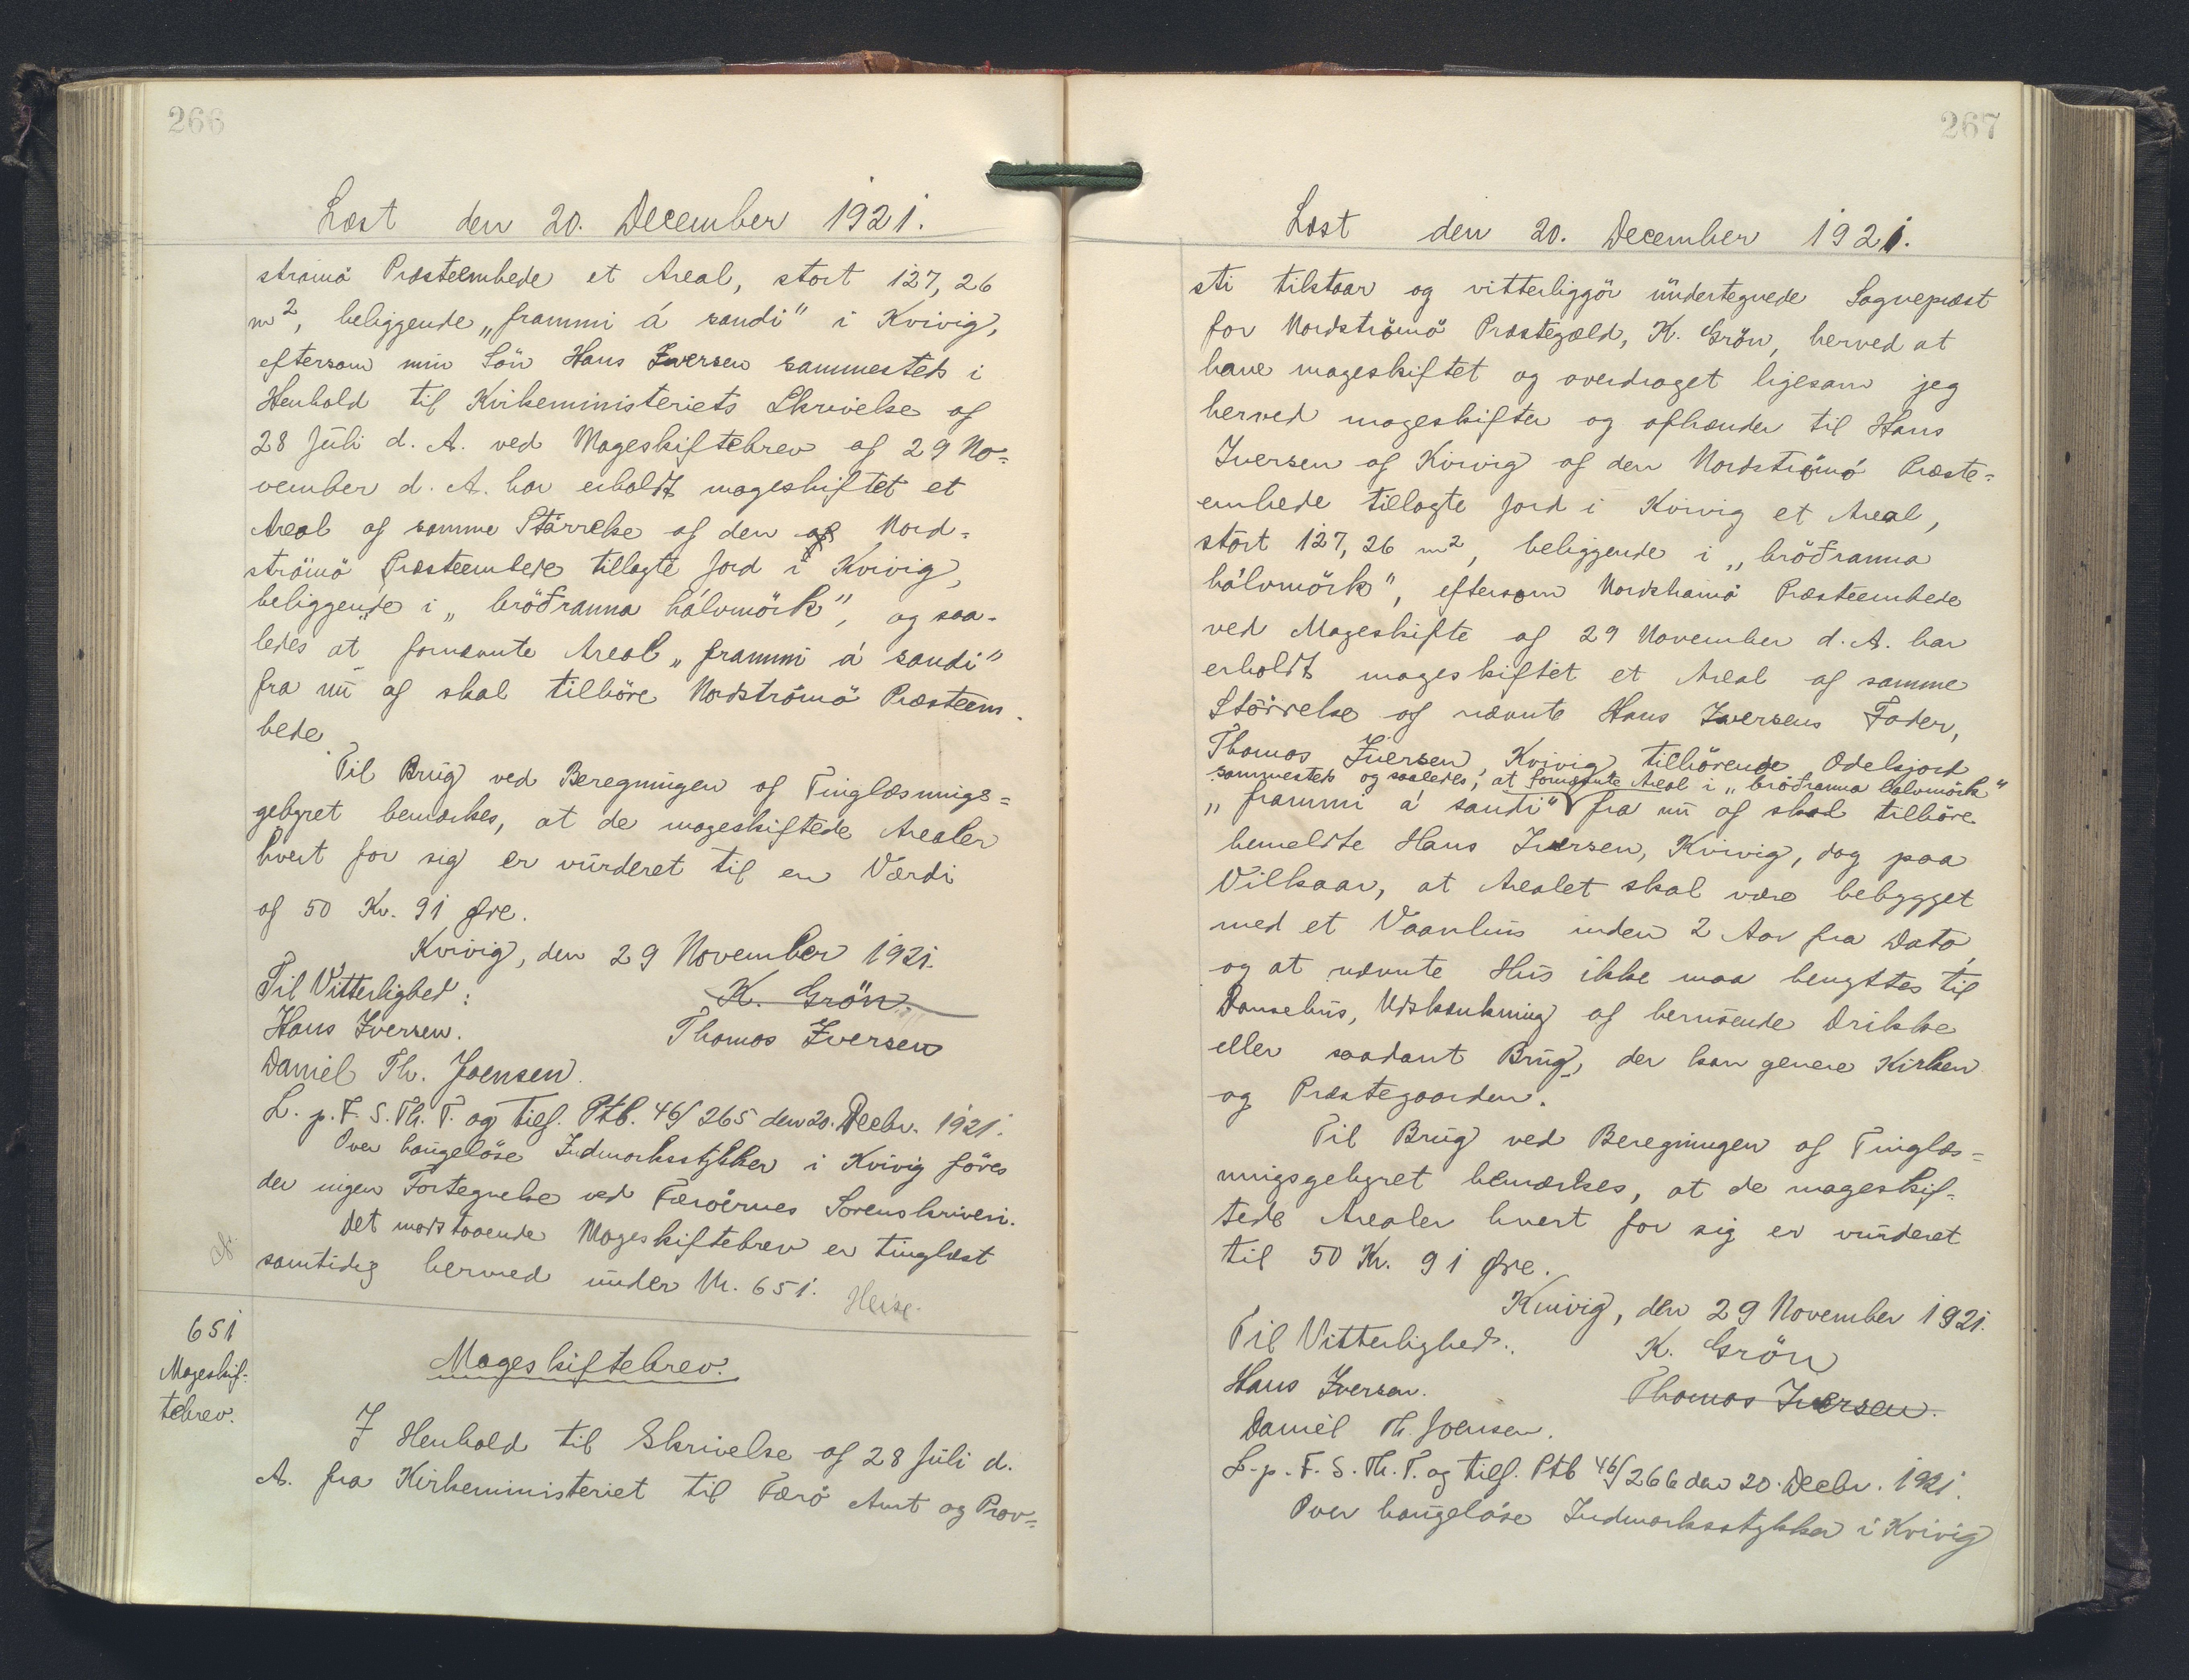 266
Læst den 20. December 1921.
strömö Præsteembede et Areal, stort 127,26
m², beliggende „frammi á sandi" i Kvivig,
eftersom min Sön Hans Iversen sammesteds i
Henhold til Kirkeministeriets Skrivelse af
28 Juli d. A. ved Mageskiftebrev af 29 No=
vember d. A. har erholdt mageskiftet et
Areal af samme Störrelse af den af Nord=
strömö Præsteembede tillagte Jord i Kvivig,
beliggende i „bröðranna hálvmörk", og saa-
ledes at fornævnte Areal „frammi á sandi"
fra nu af skal tilhöre Nordströmö Præsteem-
bede.
Til Brug ved Beregningen af Tinglæsnings=
gebyret bemærkes, at de mageskiftede Arealer
hvert for sig er vurderet til en Værdi
af 50 Kr. 91 Øre.
Kvivig, den 29 November 1921.
Til Vitterlighed:
K. Grön.
Hans Iversen.
Thomas Iversen
Daniel Th. Joensen.
L. p. F. S. Th. T. og tilf. Ptb. 46/265 den 20. Decbr. 1921.
Over haugelöse Indmarksstykker i Kvivig föres
der ingen Fortegnelse ved Færöernes Sorenskriveri.
Det modstaaende Mageskiftebrev er tinglæst
samtidig hermed under Nr. 651.
Heise.
651
Mageskif-
tebrev.
Mageskiftebrev.
I Henhold til Skrivelse af 28 Juli d.
A. fra Kirkeministeriet til Færö Amt og Prov=
267
Læst den 20. December 1921.
sti tilstaar og vitterliggör undertegnede Sognepræst
for Nordströmö Præstegæld, K. Grön, herved at
have mageskiftet og overdraget ligesom jeg
herved mageskifter og afhænder til Hans
Iversen af Kvivig af den Nordströmö Præste=
embede tillagte Jord i Kvivig et Areal,
stort 127,26 m², beliggende i „bröðranna
hálvmörk", eftersom Nordströmö Præsteembede
ved Mageskifte af 29 November d. A. har
erholdt mageskiftet et Areal af samme
Störrelse af nævnte Hans Iversens Fader,
Thomas Iversen, Kvivig tilhörende Odelsjord
sammesteds og saaledes, at fornævnte Areal i „bröðranna hálvmörk"
„frammi á sandi" fra nu af skal tilhöre
bemeldte Hans Iversen, Kvivig, dog paa
Vilkaar, at Arealet skal være bebygget
med et Vaanhus inden 2 Aar fra Dato,
og at nævnte Hus ikke maa benyttes til
Dansehus, Udskænkning af berusende Drikke
eller saadant Brug, der kan genere Kirken
og Præstegaarden.
Til Brug ved Beregningen af Tinglæs=
ningsgebyret bemærkes, at de mageskif=
tede Arealer hvert for sig er vurderet
til 50 Kr. 91 Øre.
Kvivig, den 29 November 1921.
Til Vitterlighed.
K. Grön
Hans Iversen.
Thomas Iversen.
Daniel Th. Joensen.
L. p. F. S. Th. T. og tilf. Ptb 46/266 den 20. Decbr. 1921.
Over haugelöse Indmarksstykker i Kvivig